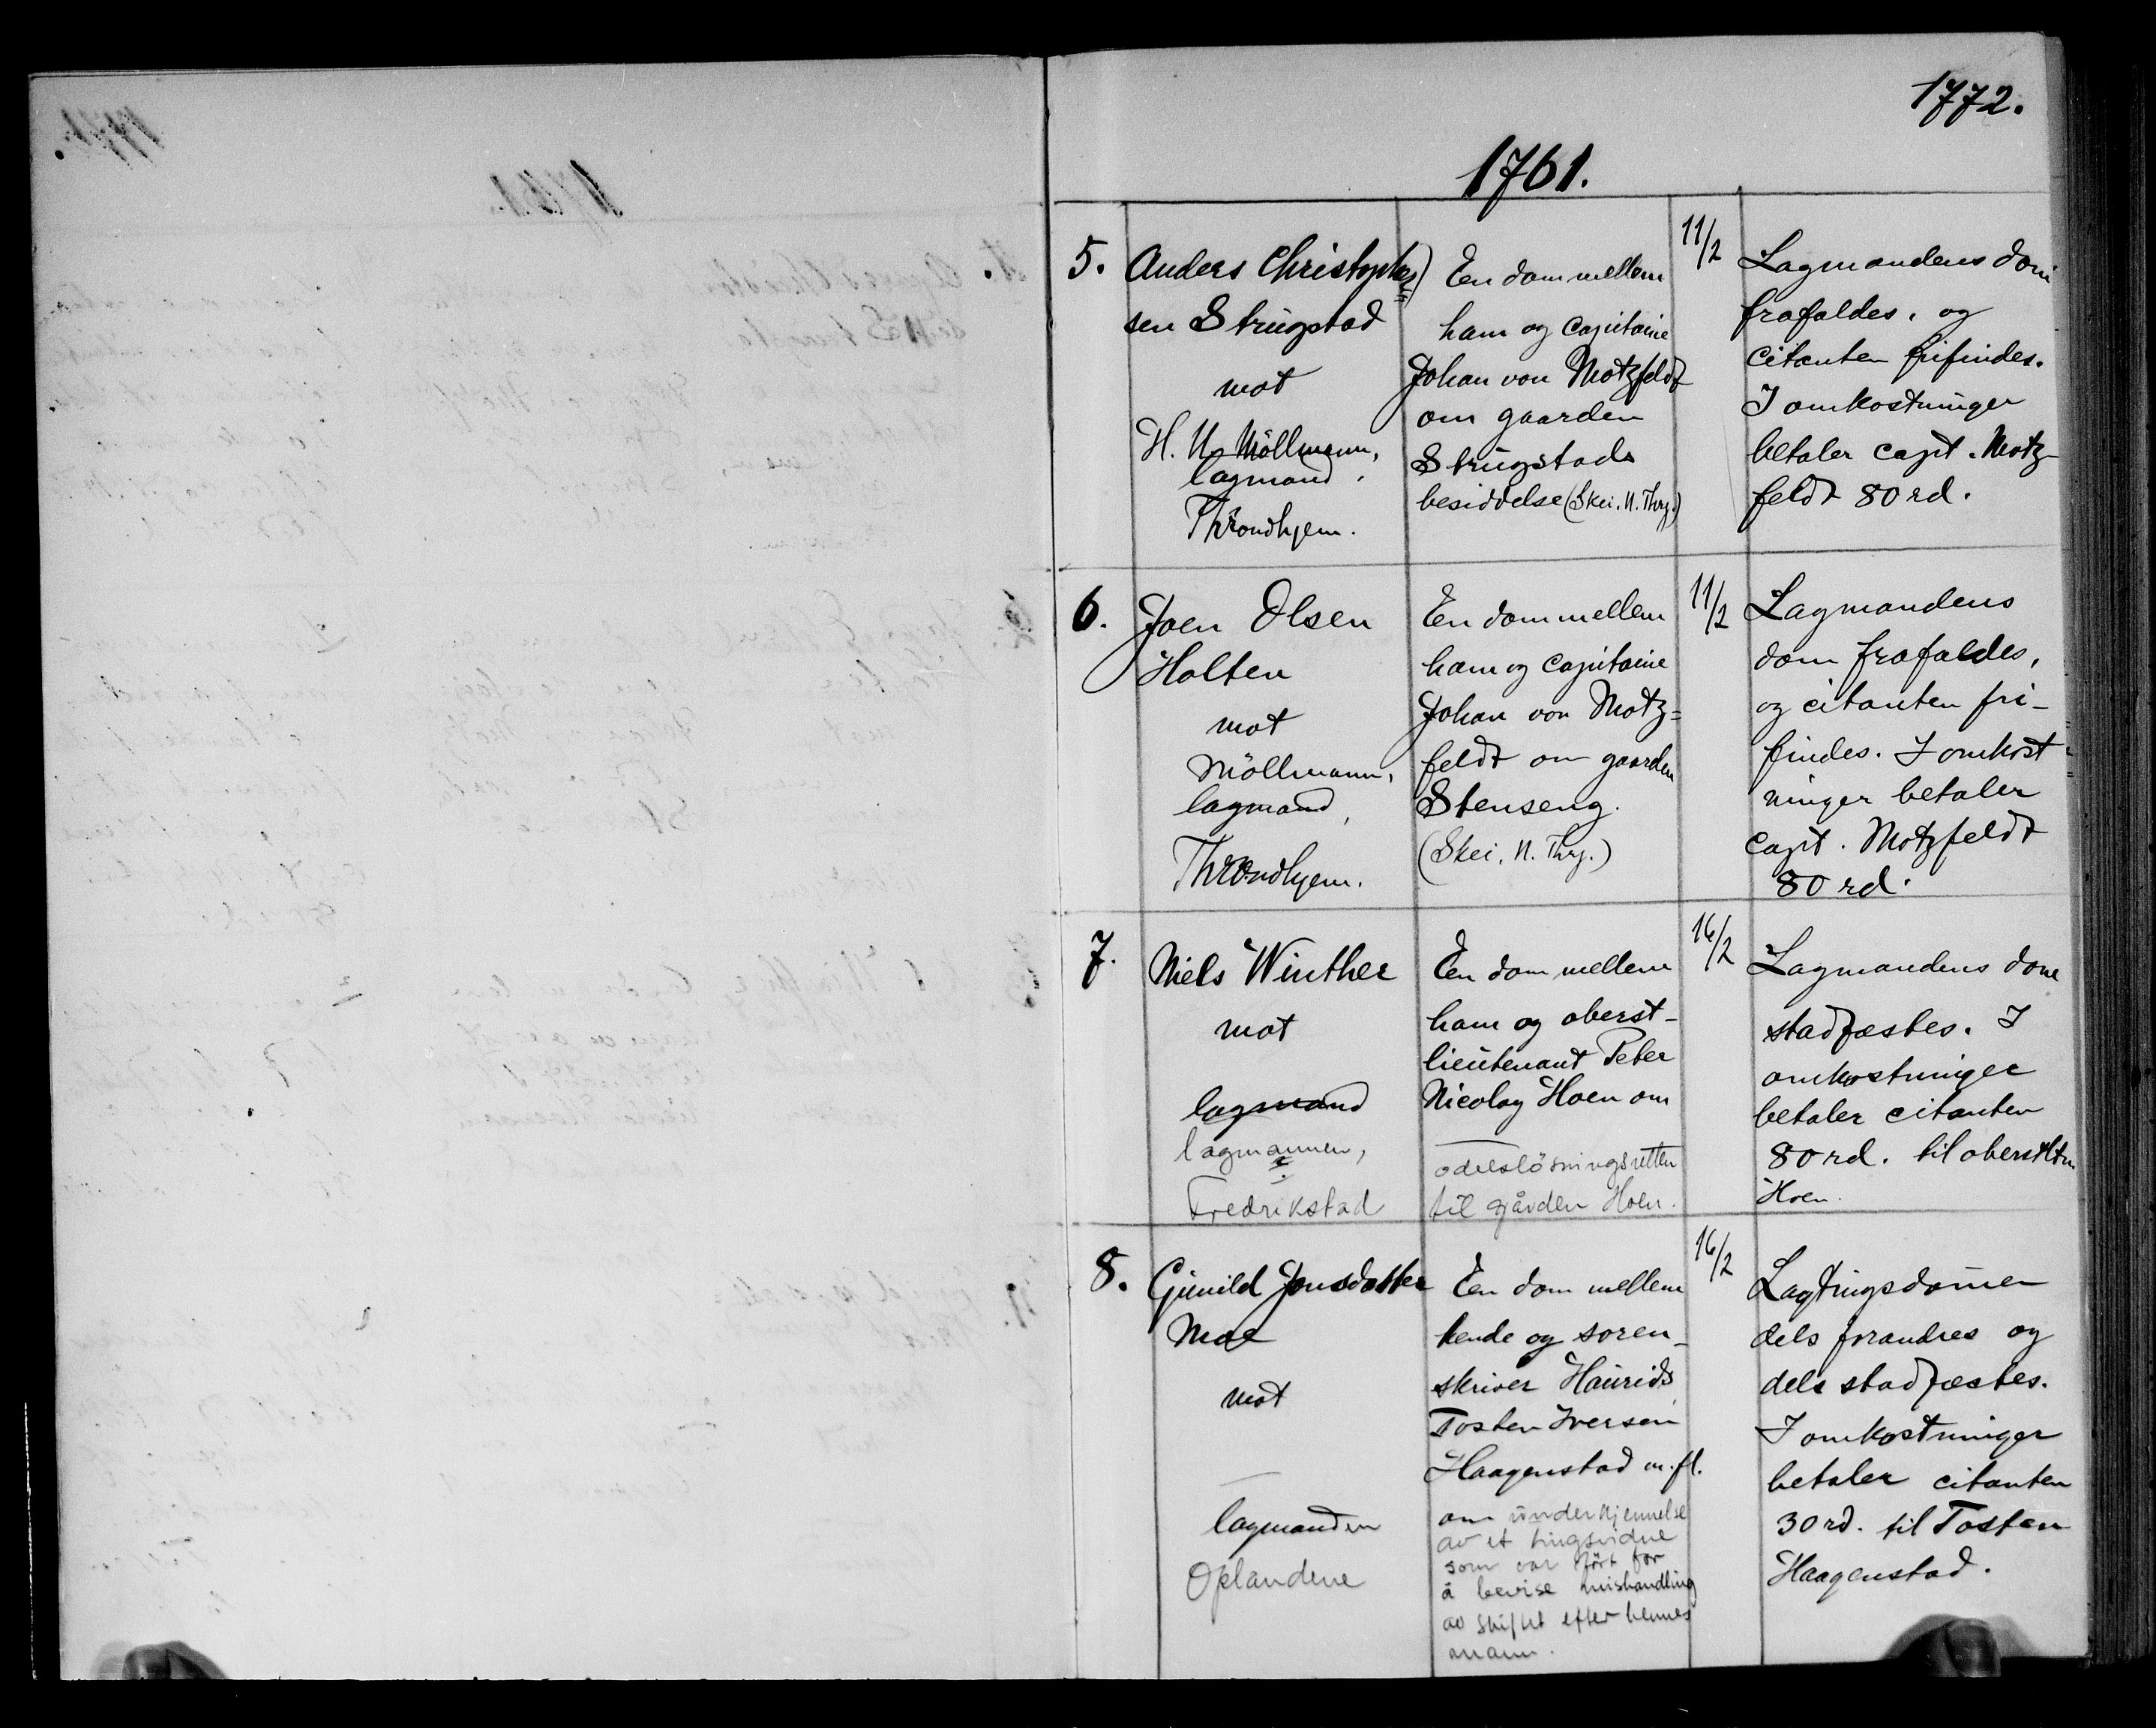 1772.
1761.
5.
Anders Christophers=
sen Strugstad
mot
H. U. Möllmann,
lagmand,
Throndhjem.
En dom mellem
ham og Capitaine
Johan von Motzfeldt
om gaarden
Strugstads
besiddelse (Skei. N. Thrj.)
11/2
Lagmandens dom
frafaldes. og
citanten frifindes.
I omkostninger
betaler capt. Motz-
feldt 80 rd.
6.
Joen Olsen
Holten
mot
Möllmann,
lagmand,
Throndhjem.
En dom mellem
ham og Capitaine
Johan von Motz=
feldt om gaarden
Stenseng.
(Skei, N. Thrj.)
11/2
Lagmandens
dom frafaldes,
og citanten fri-
findes. I omkost=
ninger betaler
capt. Motzfeldt
80 rd.
7.
Niels Winther
mot
lagmand
lagmannen,
Fredrikstad
En dom mellem
ham og oberst-
lieutenant Peter
Nicolay Hoen om
odelslösningsretten
til gården Hoen.
16/2
Lagmandens dom
stadfæstes. I
omkostninger
betaler citanten
80 rd. til oberstltn
Hoen.
8.
Gunild Jonsdatter
Moe
mot
lagmanden
Oplandene
En dom mellem
hende og soren-
skriver Haurids
Tosten Iversen
Haagenstad m.fl.
om underkjennelse
av et tingsvidne
som var ført for
å bevise mishandling
av skiftet efter hennes
mann.
16/2
Lagtingsdommen
dels forandres og
dels stadfæstes.
I omkostninger
betaler citanten
30 rd. til Tosten
Haagenstad.